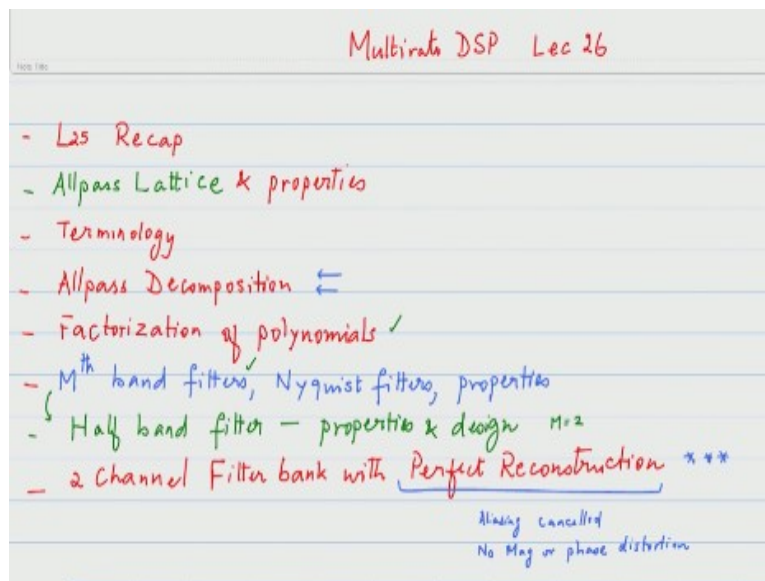 Multirate DSP Lec 26
Note Title
- L25 Recap
- Allpass Lattice & properties
- Terminology
- Allpass Decomposition ⇐
- Factorization of polynomials ✓
- Mth band filters, ✓ Nyquist filters, properties
- Half band filter — properties & design M=2
- 2 Channel Filter bank with Perfect Reconstruction ***
Aliasing cancelled
No Mag or phase distortion